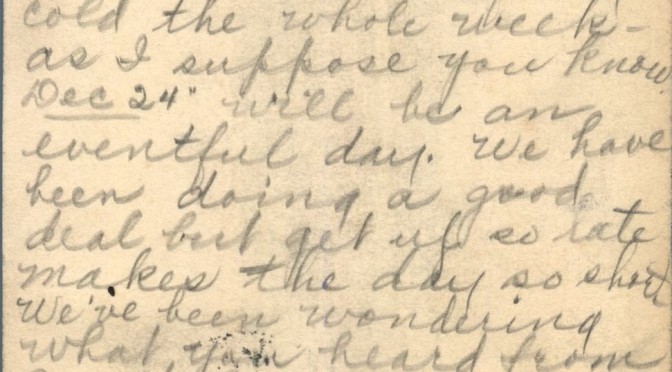 cold the whole week -
as I suppose you know
Dec 24" will be an
eventful day. We have
been doing a good
deal but get up so late
makes the day so short
We've been wondering
what you heard from